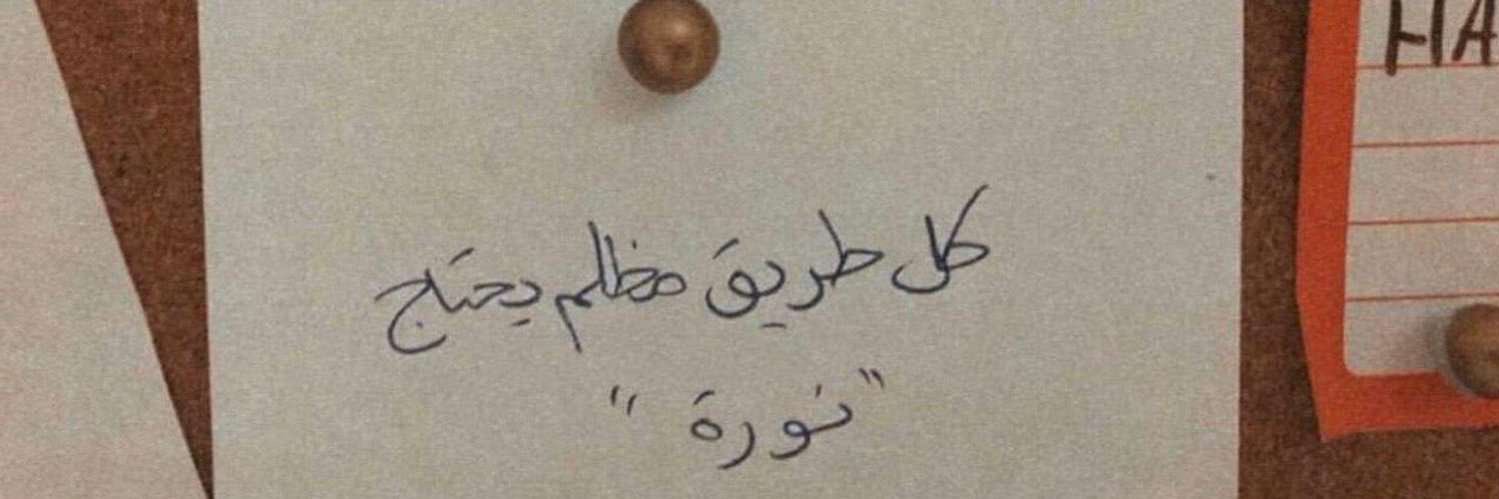 كل طريق مظلم يحتاج
"نورة"
HA